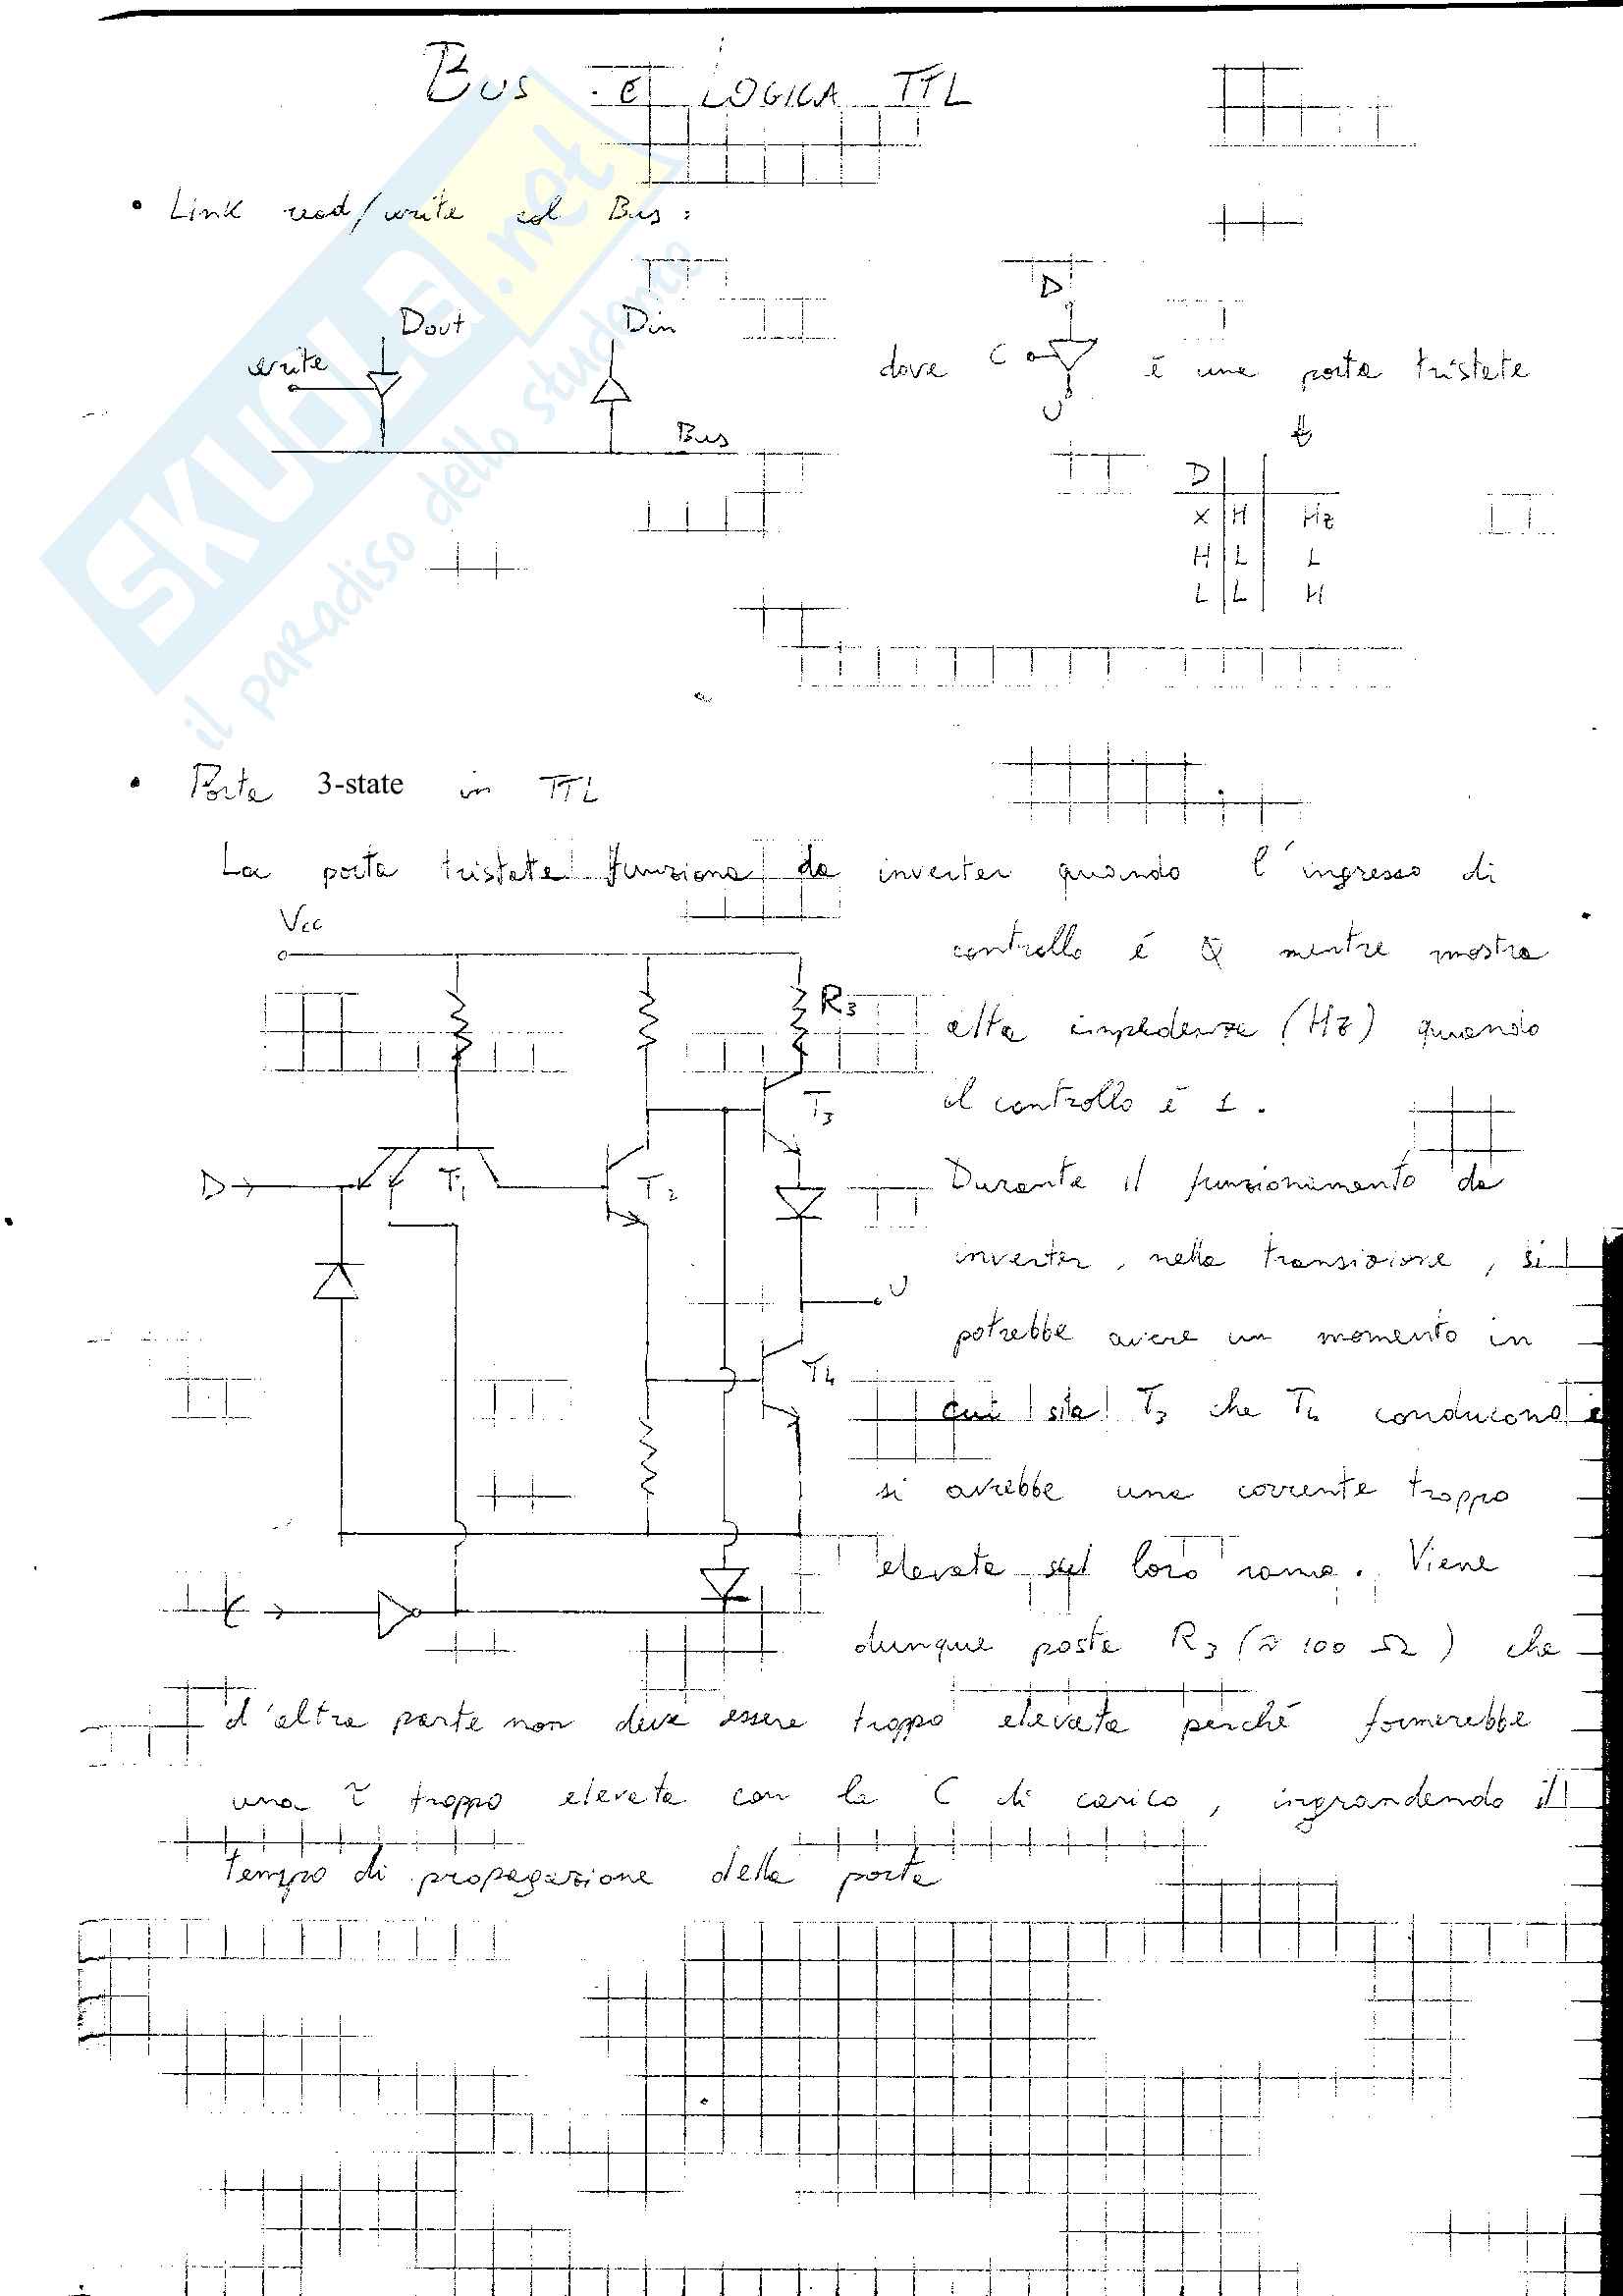 BUS E LOGICA TTL
• Link read/write col Bus:
Dout Din D
write dove C è una porta tristate
U
Bus
D
X H Hz
H L L
L L H
SKUOLA.net
il paradiso dello studente
• Porte 3-state in TTL
La porta tristate funziona da inverter quando l'ingresso di
Vcc
controllo è 0 mentre mostra
R3
alta impedenza (Hz) quando
il controllo è 1.
T3
D T1 T2
Durante il funzionamento da
inverter, nella transizione, si
U
potrebbe avere un momento in
T4
cui sia T3 che T4 conducono e
si avrebbe una corrente troppo
elevata sul loro ramo. Viene
C
dunque posta R3 (≈ 100 Ω) che
d'altra parte non deve essere troppo elevata perché formerebbe
una τ troppo elevata con la C di carico, ingrandendo il
tempo di propagazione della porta